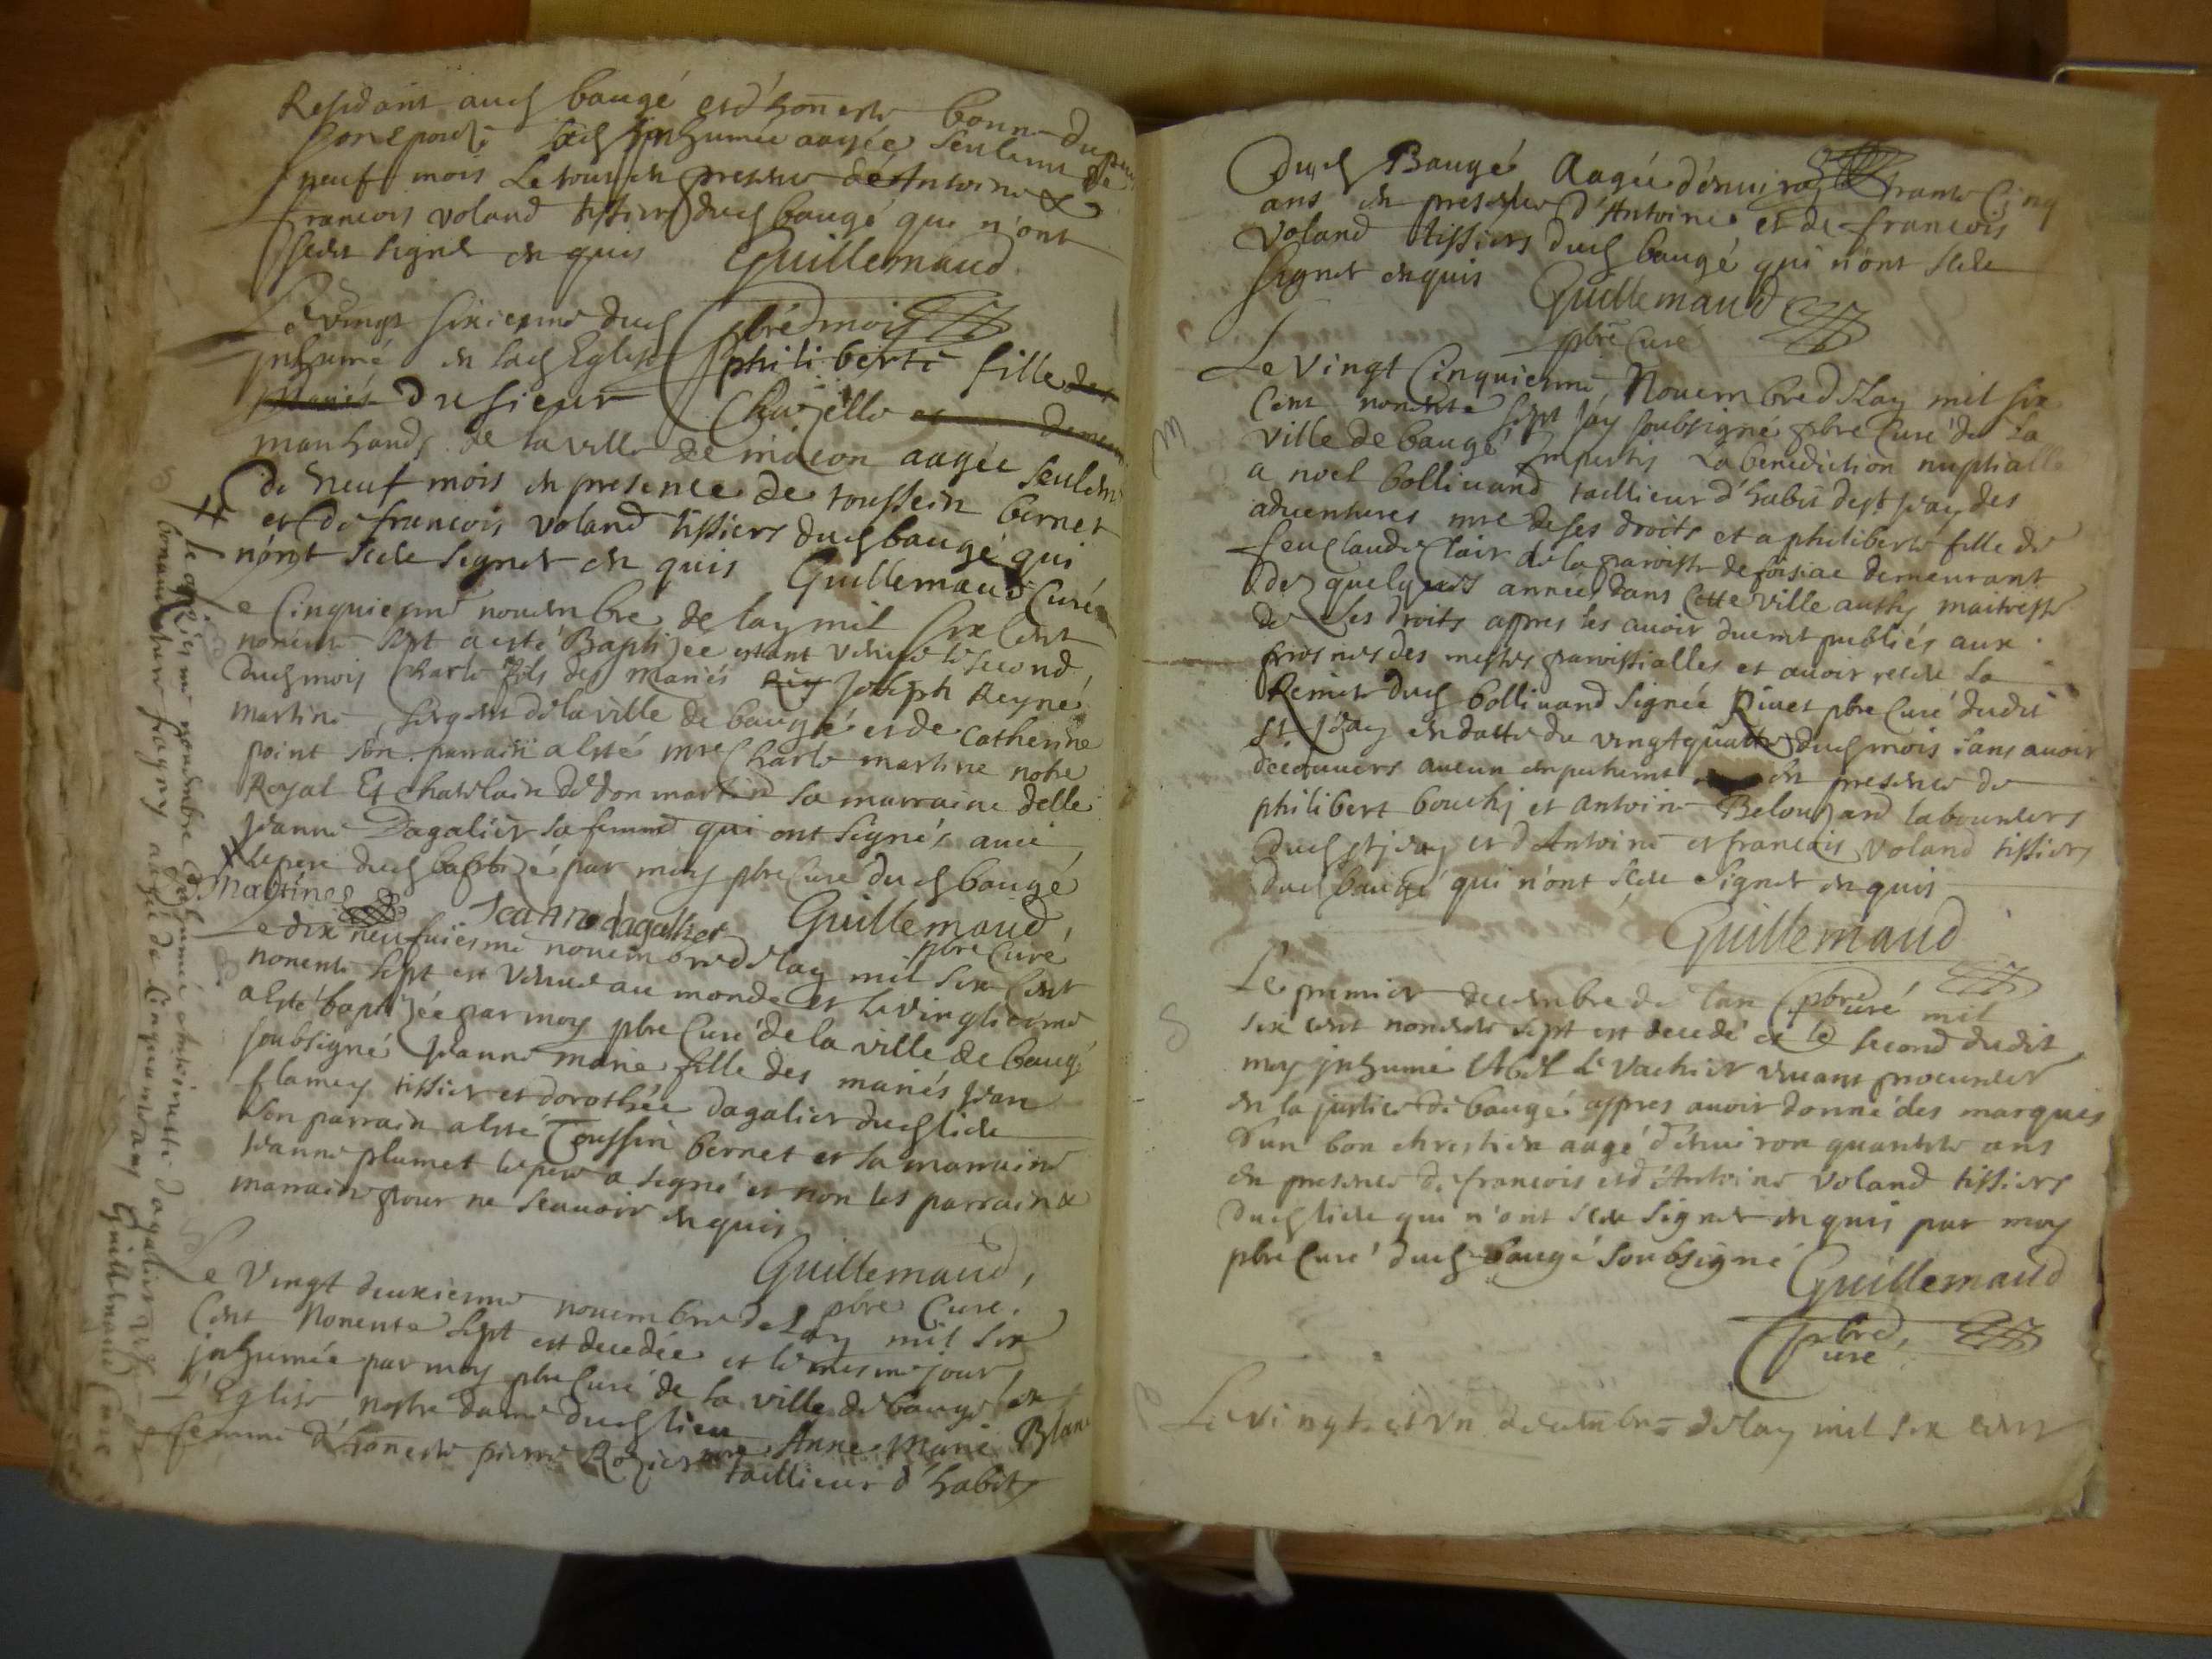 Residant aud baugé et d'honeste bonne dupuis
son epouse lad inhumée aagée seulemt de
neuf mois Le tout en presence de Antoine &
francois voland tissiers dud baugé qui n'ont
sceu signer enquis Guillemaud
pbre Curé
Le vingt sixiesme dud mois
inhumé en lad Eglise philiberte fille des
mariés du sieur Chapelle et
marchand de la ville de mâcon aagée seulemt
de neuf mois en presence de toussein bernet
et de francois voland tissiers dud baugé qui
n'ont sceu signer en quis Guillemaud Curé
Le Cinquiesme nouembre de lay mil six Cent
nonente sept a esté Baptizee estant venue le second
dud mois Charle fils des mariés Joseph Reyné
martine sergent de la ville de baugé et de Catherine
point son parrain a esté mre Charle martine notre
Royal Et chatelain de donmartin sa marraine delle
jeanne Dagalier sa femme qui ont signés auec
le pere dud baptizé par moy pbre Curé dud baugé
Martine Jeanne dagallier Guillemaud,
pbre Curé
Le dix neufuiesme nouembre de lay mil six Cent
nonente sept est venue au monde et le vingtiesme
a esté baptizée par moy pbre Curé de la ville de baugé
soubsigné jeanne marie fille des mariés jean
flamey tissier et dorothée dagalier dud lieu
son parrain a esté Toussin bernet et sa marraine
jeanne plumet le pere a signé et non les parrain &
marraine pour ne scauoir enquis
Guillemaud,
pbre Curé.
Le Vingt deuxiesme nouembre de Lay mil six
Cent Nonente sept est decedée et le mesme jour
inhumée par moy pbre Curé de la ville de baugé en
l'Eglise nostre dame dud lieu Anne Marie Blanc
femme d'honeste pierre Rozier mre taillieur d'habits
# le onziesme nouembre inhumé Antoinette dagalier
bonauenture fragny agée de Cinquante ans Guillemaud Curé
Dud Baugé Aagée d'enuiron trante Cinq
ans en presence d'Antoine et de francois
Voland tissiers dud baugé qui n'ont sceu
signer enquis Guillemaud
pbre Curé
m
Le Vingt Cinquiesme Nouembre de Lay mil six
Cent nonente sept jay soubsigné pbre Curé de La
ville de baugé Imparty La benediction nuptialle
a noel bollinand taillieur d'habit de st jean des
aduentures mre de ses droits et a philiberte fille de
feu Claude Clair de la paroisse de foisiac demeurant
dez quelques années dans Cette ville aussy maitresse
de ses droits appres les auoir duemt publiés aux
prosnes des messes paroissialles et auoir receu La
Remise dud bollinand signée Riuet pbre Curé dudit
st jean en datte du vingt quatre dud mois sans auoir
decouuers aucun empechemt en presence de
philibert bouchy et Antoine Belouzard laboureurs
dud st jean et d'Antoine et francois voland tissiers
dud baugé qui n'ont sceu signer enquis
Guillemaud
pbre Curé
Le premier decembre de lan mil
six cent nonente sept est decedé et le second dudit
moy inhumé Abel Le Vachier viuant procureur
en la justice de baugé appres auoir donné des marques
d'un bon chrestien aagé d'enuiron quarente ans
en presence de francois et d'Antoine voland tissiers
dud lieu qui n'ont sceu signer enquis par moy
pbre Curé dud baugé soubsigné Guillemaud
pbre Curé
Le vingt et vn decembre de lay mil six cent